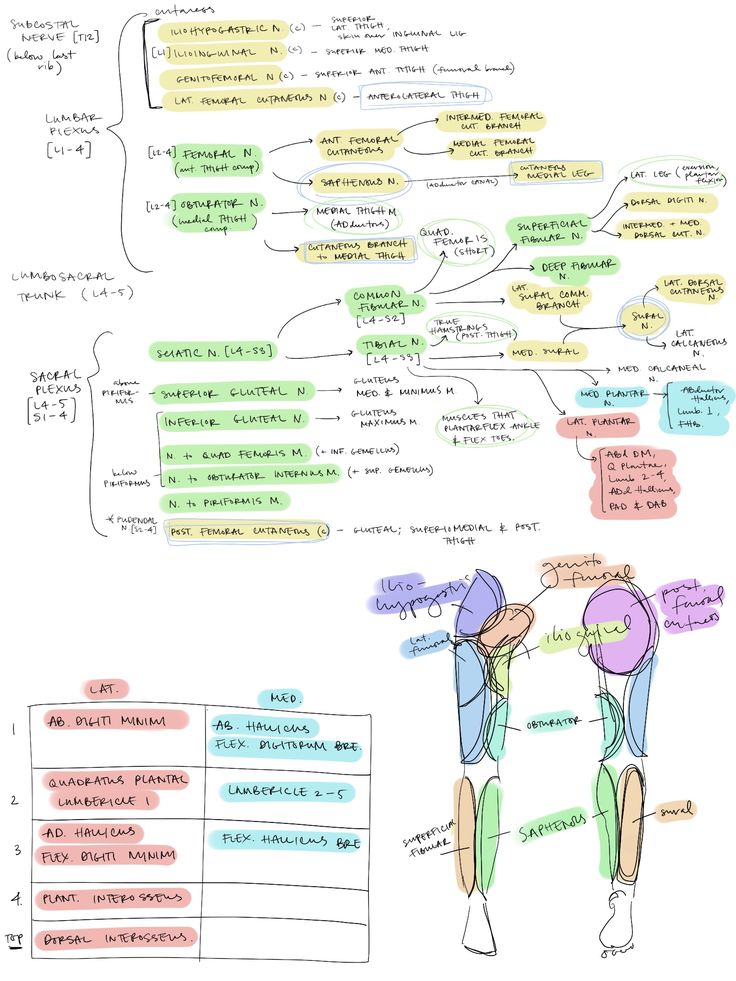 cutaneous
SUBCOSTAL
NERVE [T12]
(below last
rib)
ILIOHYPOGASTRIC N. (c) – SUPERIOR
LAT. THIGH,
skin over INGUINAL LIG
[L1] ILIOINGUINAL N. (c) – SUPERIOR MED. THIGH
GENITOFEMORAL N (c) – SUPERIOR ANT. THIGH (femoral branch)
LAT. FEMORAL CUTANEOUS N (c) – ANTEROLATERAL THIGH
LUMBAR
PLEXUS
[L1-4]
[L2-4] FEMORAL N.
(ant. THIGH comp.)
ANT FEMORAL
CUTANEOUS
INTERMED. FEMORAL
CUT. BRANCH
MEDIAL FEMORAL
CUT. BRANCH
SAPHENOUS N.
(ADductor CANAL)
CUTANEOUS
MEDIAL LEG
[L2-4] OBTURATOR N.
(medial THIGH
comp.)
MEDIAL THIGH M.
(ADductors)
CUTANEOUS BRANCH
to MEDIAL THIGH
LUMBOSACRAL
TRUNK (L4-5)
QUAD.
FEMORIS
(SHORT)
SUPERFICIAL
FIBULAR N.
LAT. LEG (eversion,
plantar
flexion)
DORSAL DIGITI N.
INTERMED. + MED.
DORSAL CUT. N.
DEEP FIBULAR
N.
COMMON
FIBULAR N.
[L4-S2]
LAT.
SURAL COMM.
BRANCH
SURAL
N.
LAT. DORSAL
CUTANEOUS
N.
LAT.
CALCANEOUS
N.
SACRAL
PLEXUS
[L4-5]
S1-4]
SCIATIC N. [L4-S3]
TIBIAL N.
[L4-S3]
TRUE
HAMSTRINGS
(POST. THIGH)
MED. SURAL
MED. CALCANEAL
N.
MED. PLANTAR
N.
ABductor
Hallicus,
Lumb. 1,
FHB.
LAT. PLANTAR
N.
ABd DM,
Q Plantae,
Lumb 2-4,
ADd Hallicus,
PAD & DAB
MUSCLES THAT
PLANTARFLEX ANKLE
& FLEX TOES.
above
PIRIFOR-
MUS
SUPERIOR GLUTEAL N.
GLUTEUS
MED. & MINIMUS M.
below
PIRIFORMUS
INFERIOR GLUTEAL N.
GLUTEUS
MAXIMUS M.
N. to QUAD FEMORIS M. (+ INF. GEMELLUS)
N. to OBTURATOR INTERNUS M. (+ SUP. GEMELLUS)
N. to PIRIFORMIS M.
* PUDENDAL
N. [S2-4]
POST. FEMORAL CUTANEOUS (c) – GLUTEAL; SUPERIOMEDIAL & POST.
THIGH
ilio-
hypogastric
genito
femoral
post.
femoral
lat.
femoral
OBTURATOR
SUPERFICIAL
FIBULAR
SAPHENOUS
sural
LAT. MED.
1 AB. DIGITI MINIMI AB. HALLICUS
FLEX. DIGITORUM BRE.
2 QUADRATUS PLANTAE
LUMBERICLE 1 LUMBERICLE 2-5
3 AD. HALLICUS FLEX. HALLICUS BRE
FLEX. DIGITI MINIMI
4. PLANT. INTEROSSEUS
TOP DORSAL INTEROSSEUS.